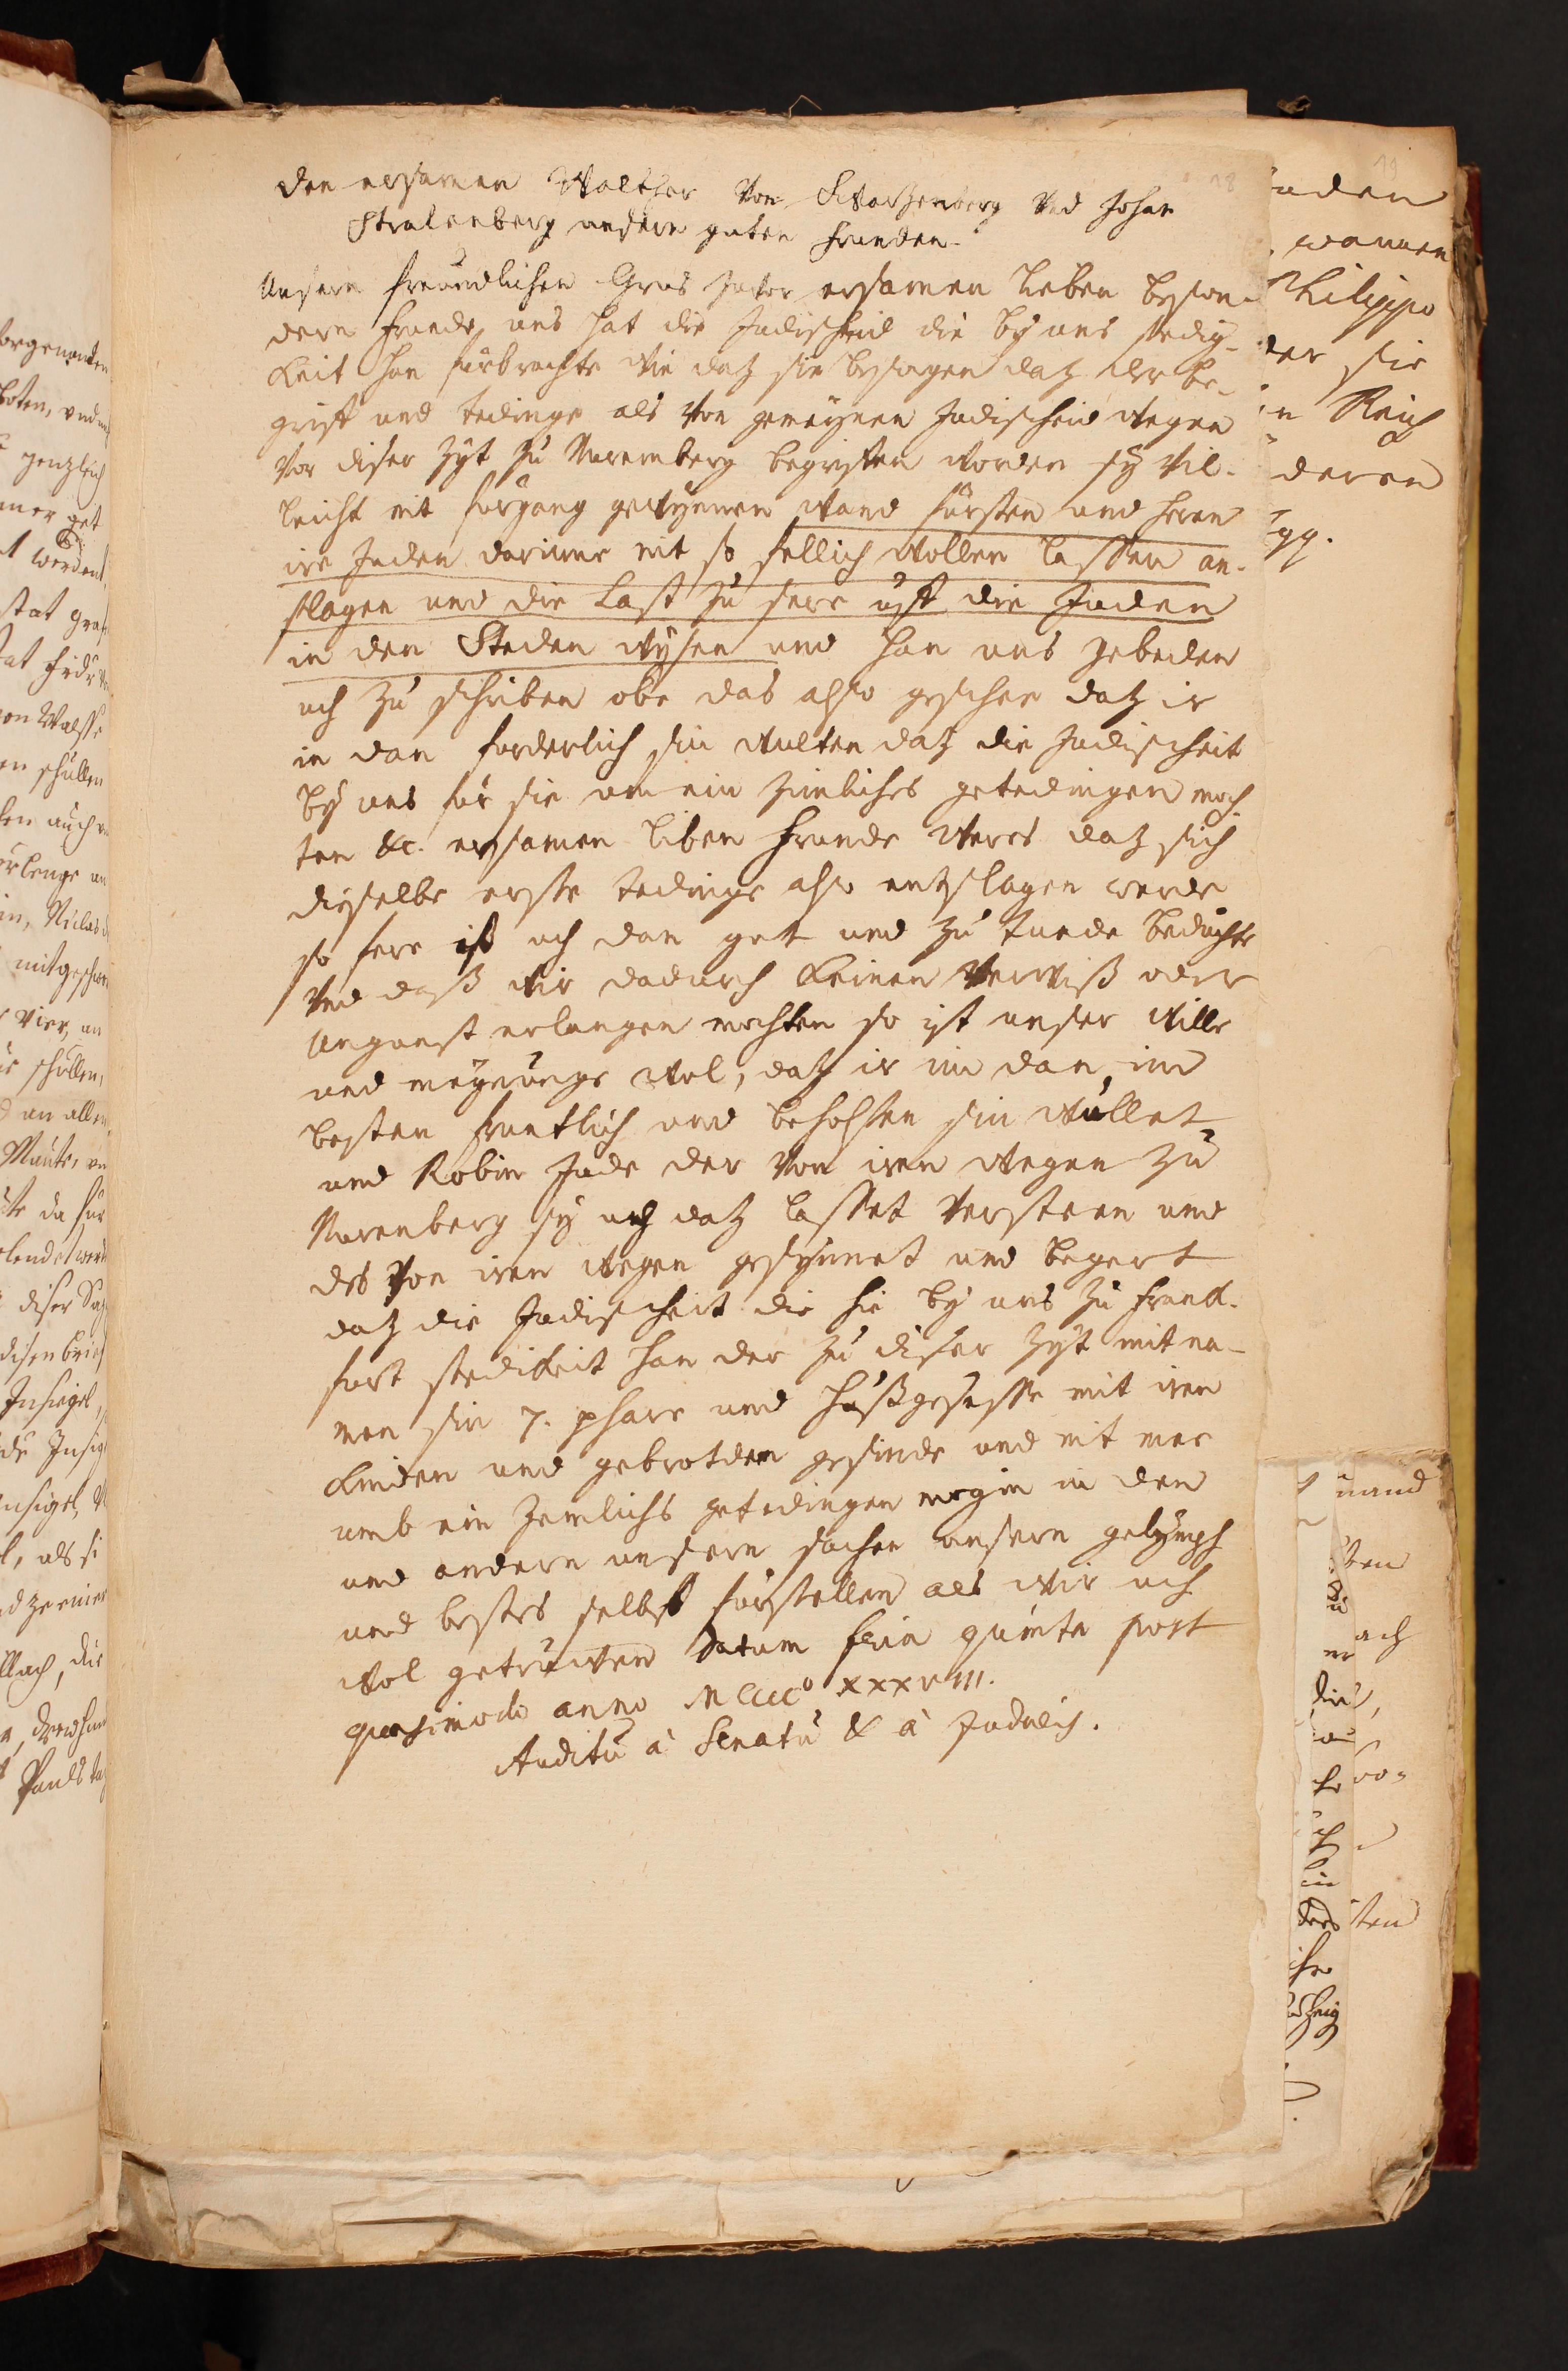 18
den ersamen Walther von Swarzenberg Vnd Johan
Stralenberg unsern guten frunden.
Unsern freundlichen Grus zuvor ersamen lieben beson-
dern frunde, uns hat die Judischeid die by uns stedig-
keit han furbrachte wie daz sie besorgen daz der be-
griff und tedinge als von gemeynen Judischeid wegen
vor diser zyt zu Nuremberg begriffen worden sy vil-
leicht nit furgang gewynnen wand fursten und heren
ire Juden darinne nit so sollich wollen lassen an-
slagen und die last zu sere uff die Juden
in den Steden wysen und han uns gebeden
uch zu schriben obe das also geschee daz ir
in dan forderlich sin wulten daz die Judischeit
by uns fur sie um ein zimliches getedingen moch-
ten &c. ersamen liben frunde weres daz sich
dieselbe erste tedinge also entslagen werde
so fere iß uch dan gut und zu tunde beduchte
Vnd daß wir dadurch keinen Verwiß oder
Ungunst erlangen mochten so ist unser wille
und meynunge wol, daz ir in dan im
besten fruntlich und beholffen sin wullet,
und Robin Jude der von iren wegen zu
Nurenberg sy uch daz lasset versteen und
des von iren wegen gesynnet und begert
daz die Judischeit die hie by uns zu Franck-
furt stedikeit han der zu diser zyt mit na-
men sin 7. phare und hußgesesse mit iren
kinden und gebrotden gesinde und nit mer
umb ein zemlichs getedingen mogin in den
und andern unsern sachen unsern gelymph
und bestes selbst furstellen als wir uch
wol getruwen Datum feria quinta post
quasimodo anno MCCCC° XXXVIII.
Auditu à Senatu & à Judaeis.